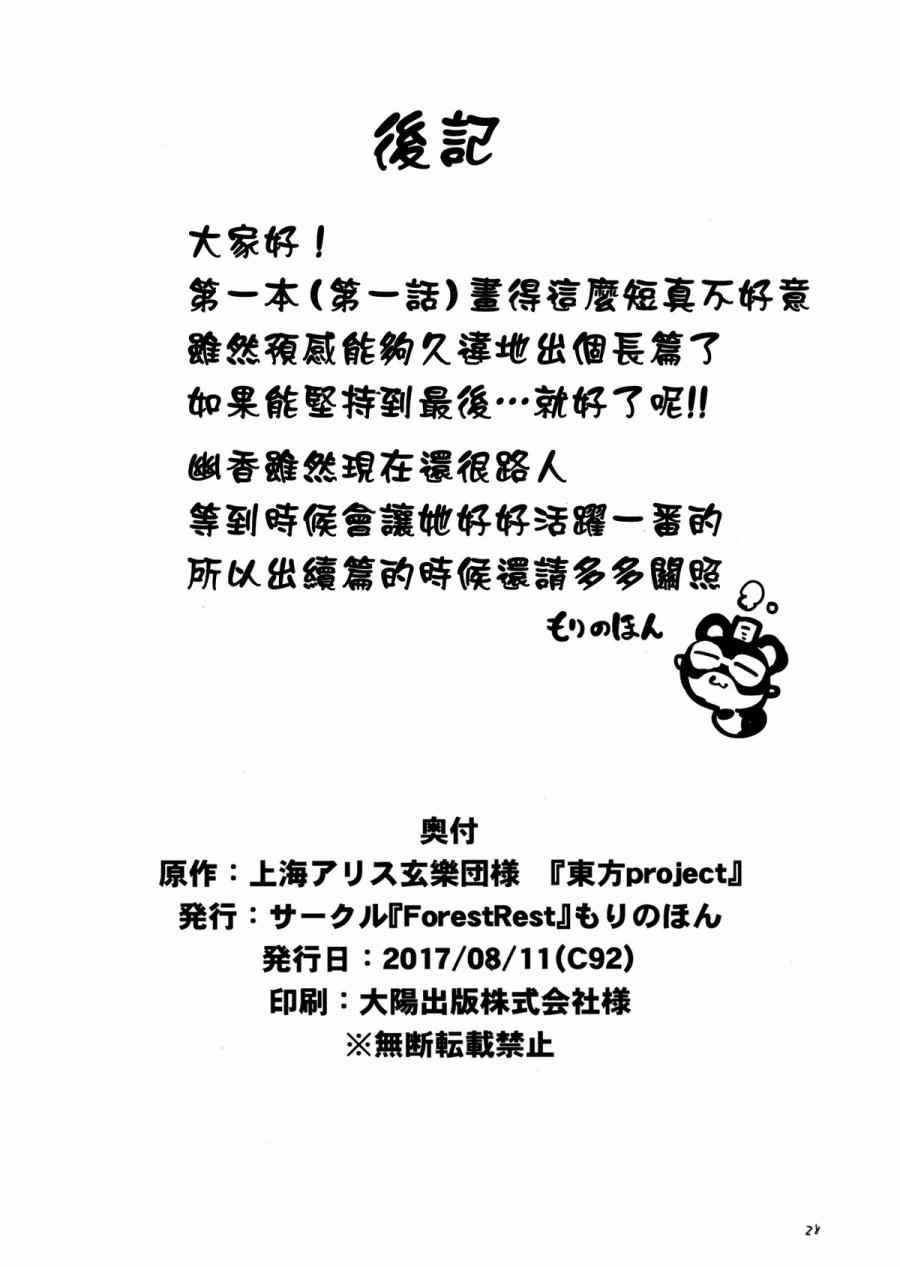 後記
大家好！
第一本(第一話)畫得這麼短真不好意
雖然預感能夠久違地出個長篇了
如果能堅持到最後…就好了呢!!
幽香雖然現在還很路人
等到時候會讓她好好活躍一番的
所以出續篇的時候還請多多關照
もりのほん
奥付
原作：上海アリス玄樂団様 『東方project』
発行：サークル『ForestRest』もりのほん
発行日：2017/08/11(C92)
印刷：大陽出版株式会社様
※無断転載禁止
28